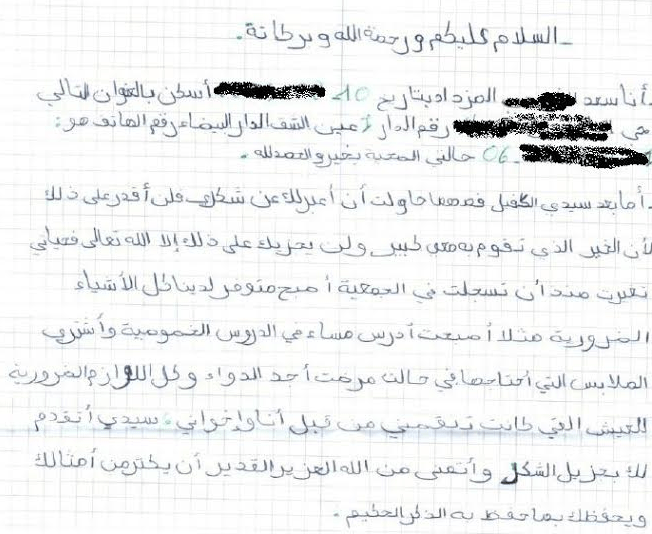 _ السلام عليكم ورحمة الله وبركاتة.
. أنا سعد المزداد بتاريخ 10 أسكن بالعنوان التالي
حي رقم الدار 7 عين الشف الدار البيضاء رقم الهاتف هو:
06 حالتي الصحية بخير والحمد لله.
. أما بعد سيدي الكفيل فمهما حاولت أن أعبر لك عن شكري فلن أقدر على ذلك
لأن الخير الذي تقوم به معي كبير ولن يجزيك على ذلك إلا الله تعالى فحياتي
تغيرت منذ أن تسجلت في الجمعية أصبح متوفر لدينا كل الأشياء
الضرورية مثلا أصبحت أدرس مساء في الدروس الخصوصية وأشتري
الملابس التي أحتاجها في حالت مرضت أجد الدواء وكل اللوازم الضرورية
للعيش التي كانت تنقصني من قبل أنا وإخواني. سيدي أتقدم
لك بجزيل الشكر وأتمنى من الله العزيز القدير أن يكثر من أمثالك
ويحفظك بما حفظ به الذكر الحكيم.